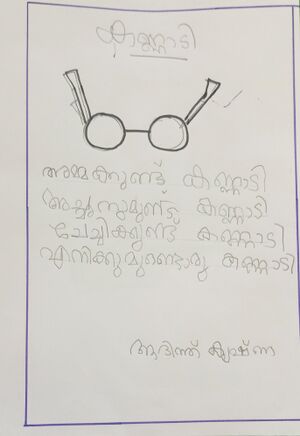 കണ്ണാടി
അമ്മക്കുണ്ട് കണ്ണാടി
അച്ഛനുമുണ്ടു കണ്ണാടി
ചേച്ചിക്കുണ്ട് കണ്ണാടി
എനിക്കുമുണ്ടൊരു കണ്ണാടി
ആദിത്ത് കൃഷ്ണ